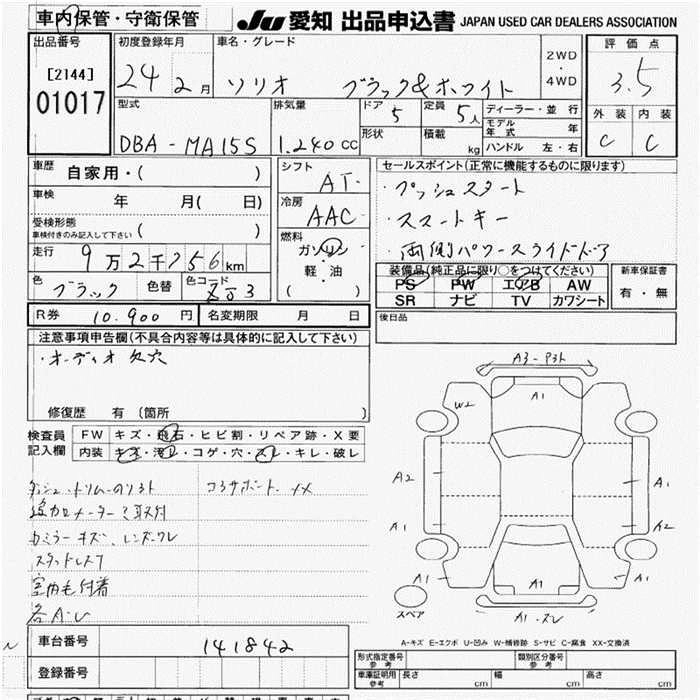 車内保管・守衛保管
JU 愛知 出品申込書 JAPAN USED CAR DEALERS ASSOCIATION
出品番号 初度登録年月 車名・グレード 評価点
[2144] 24 2月 ソリオ ブラック&ホワイト 2WD・4WD 3.5
01017
型式 排気量 ドア 5 定員 5人 ディーラー・並行 外装 内装
DBA-MA15S 1.240cc 形状 積載 kg モデル年式 年 C C
ハンドル 左・右
車歴 自家用・( ) シフト AT セールスポイント(正常に機能するものに限ります)
車検 年 月( 日) 冷房 AAC ・プッシュスタート
受検形態 ( ) ・スマートキー
車検付きのみ記入して下さい
走行 9万2千756km 燃料 ガソリン ・両側パワースライドドア
軽・油
( )
色 ブラック 色替 色コード ZJ3
装備品(純正品に限り○をつけてください) 新車保証書
PS PW エアB AW 有・無
SR ナビ TV カワシート
R券 10.900円 名変期限 月 日 後日品
注意事項申告欄(不具合内容等は具体的に記入して下さい)
・オーディオ欠穴
修復歴 有(箇所 )
検査員記入欄 FW キズ・飛石・ヒビ割・リペア跡・X要
内装 キズ・汚レ・コゲ・穴・スレ・キレ・破レ
コアサポート XX
スタッドレス
室内毛付着
A3-
A1
W2
A2
A1
A1
A2
A1
A1
A1
A1・スレ
スペア
A-キズ E-エクボ U-凹み W-補修跡 S-サビ C-腐食 XX-交換済
車台番号 141842
登録番号
形式指定番号 参考 類別区分番号 参考
車庫証明用 参考 長さ cm 幅 cm 高さ cm